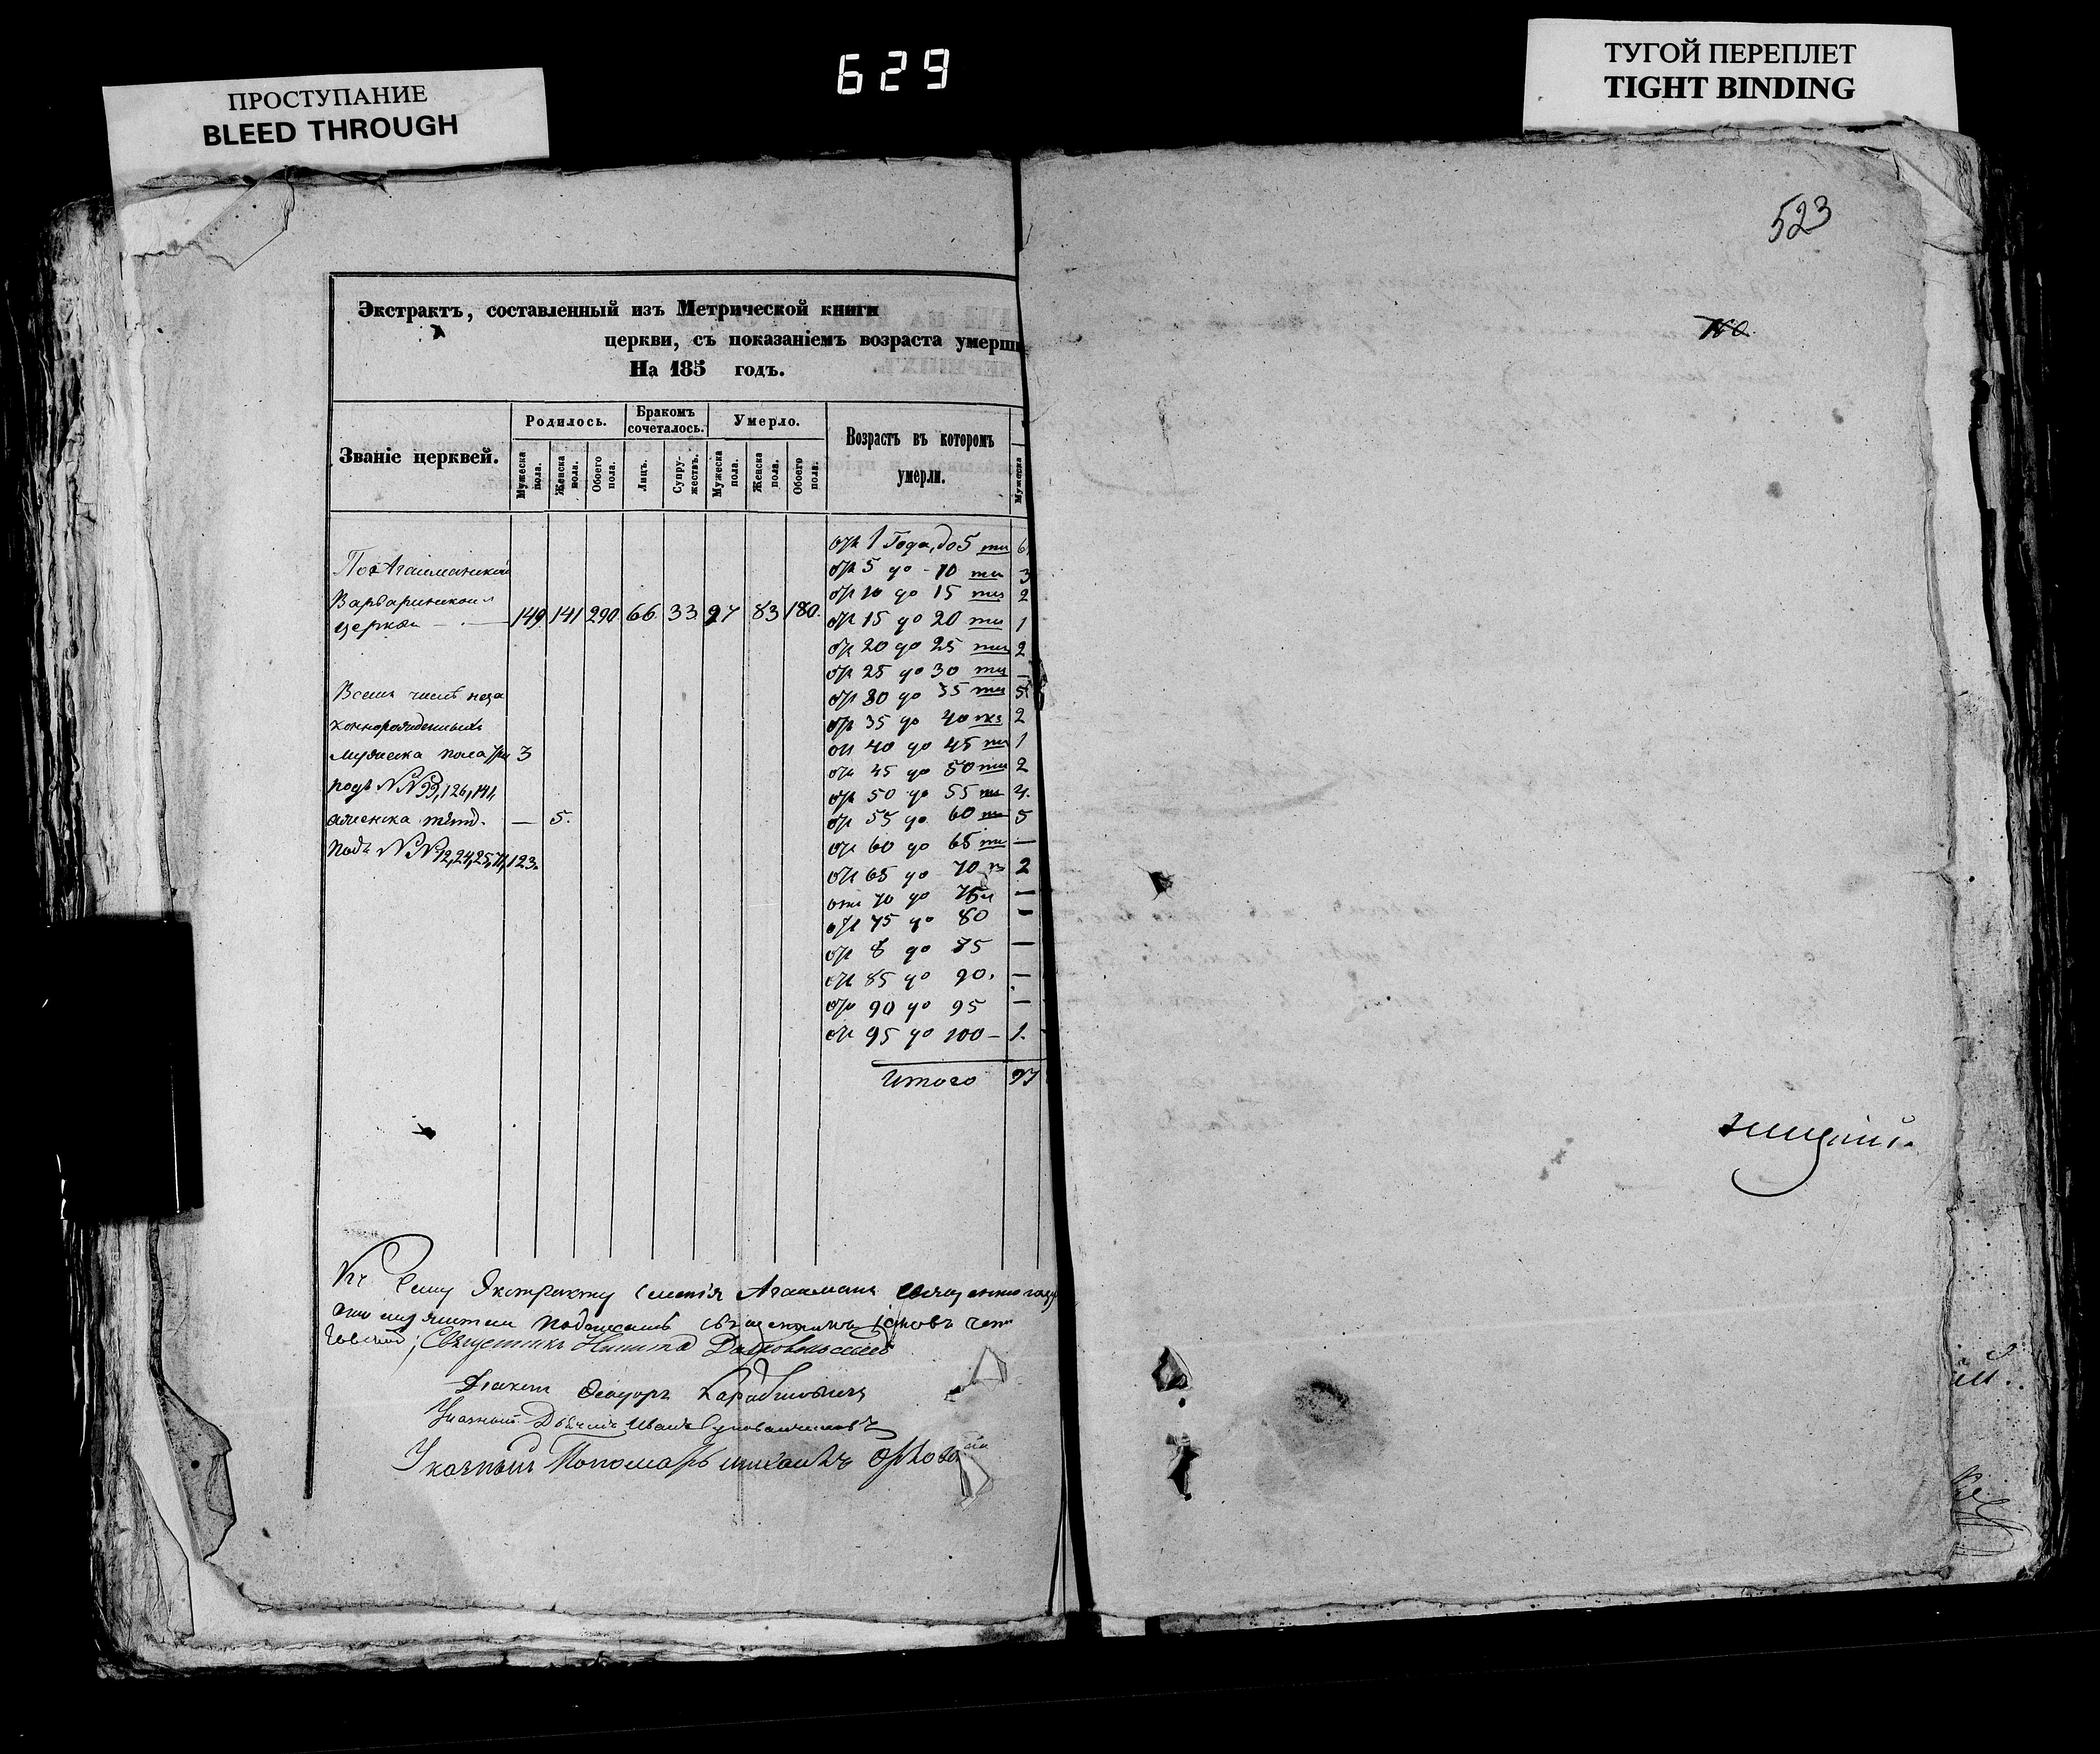 629
ПРОСТУПАНИЕ
BLEED THROUGH
ТУГОЙ ПЕРЕПЛЕТ
TIGHT BINDING
523
Экстрактъ, составленный изъ Метрической книги
церкви, съ показаніемъ возраста умерш
На 185 годъ.
Званіе церквей.
Родилось.
Бракомъ сочеталось.
Умерло.
Возрастъ въ которомъ умерли.
Мужеска пола.
Женска пола.
Обоего пола.
Лицъ.
Супружествъ.
Мужеска пола.
Женска пола.
Обоего пола.
Мужеска
По Агайманской
Варваринской
церкви 149 141 290 66 33 97 83 180.
Всемъ числѣ неза
коннорожденныхъ
мужеска пола три 3
подъ NN 99, 126, 141,
женска пять. — 5.
подъ NN 12, 24, 25, 71, 123.
отъ 1 Года, до 5 ти 6
отъ 5 до 10 ти 3
отъ 10 до 15 ти 2
отъ 15 до 20 ти 1
отъ 20 до 25 ти 2
отъ 25 до 30 ти —
отъ 30 до 35 ти 5
отъ 35 до 40 2
отъ 40 до 45 ти 1
отъ 45 до 50 ти 2
отъ 50 до 55 ти 4.
отъ 55 до 60 ти 5
отъ 60 до 65 ти —
отъ 65 до 70 2
отъ 70 до 75 —
отъ 75 до 80 —
отъ 8 до 85 —
отъ 85 до 90. —
отъ 90 до 95 —
отъ 95 до 100 — 1.
Итого 97
Къ Сему Экстракту Селенія Агаимана
Священникъ Никита Добровольскій
Діаконъ Феодоръ
Указный Дьячекъ Иванъ
Указный Пономарь Михаилъ